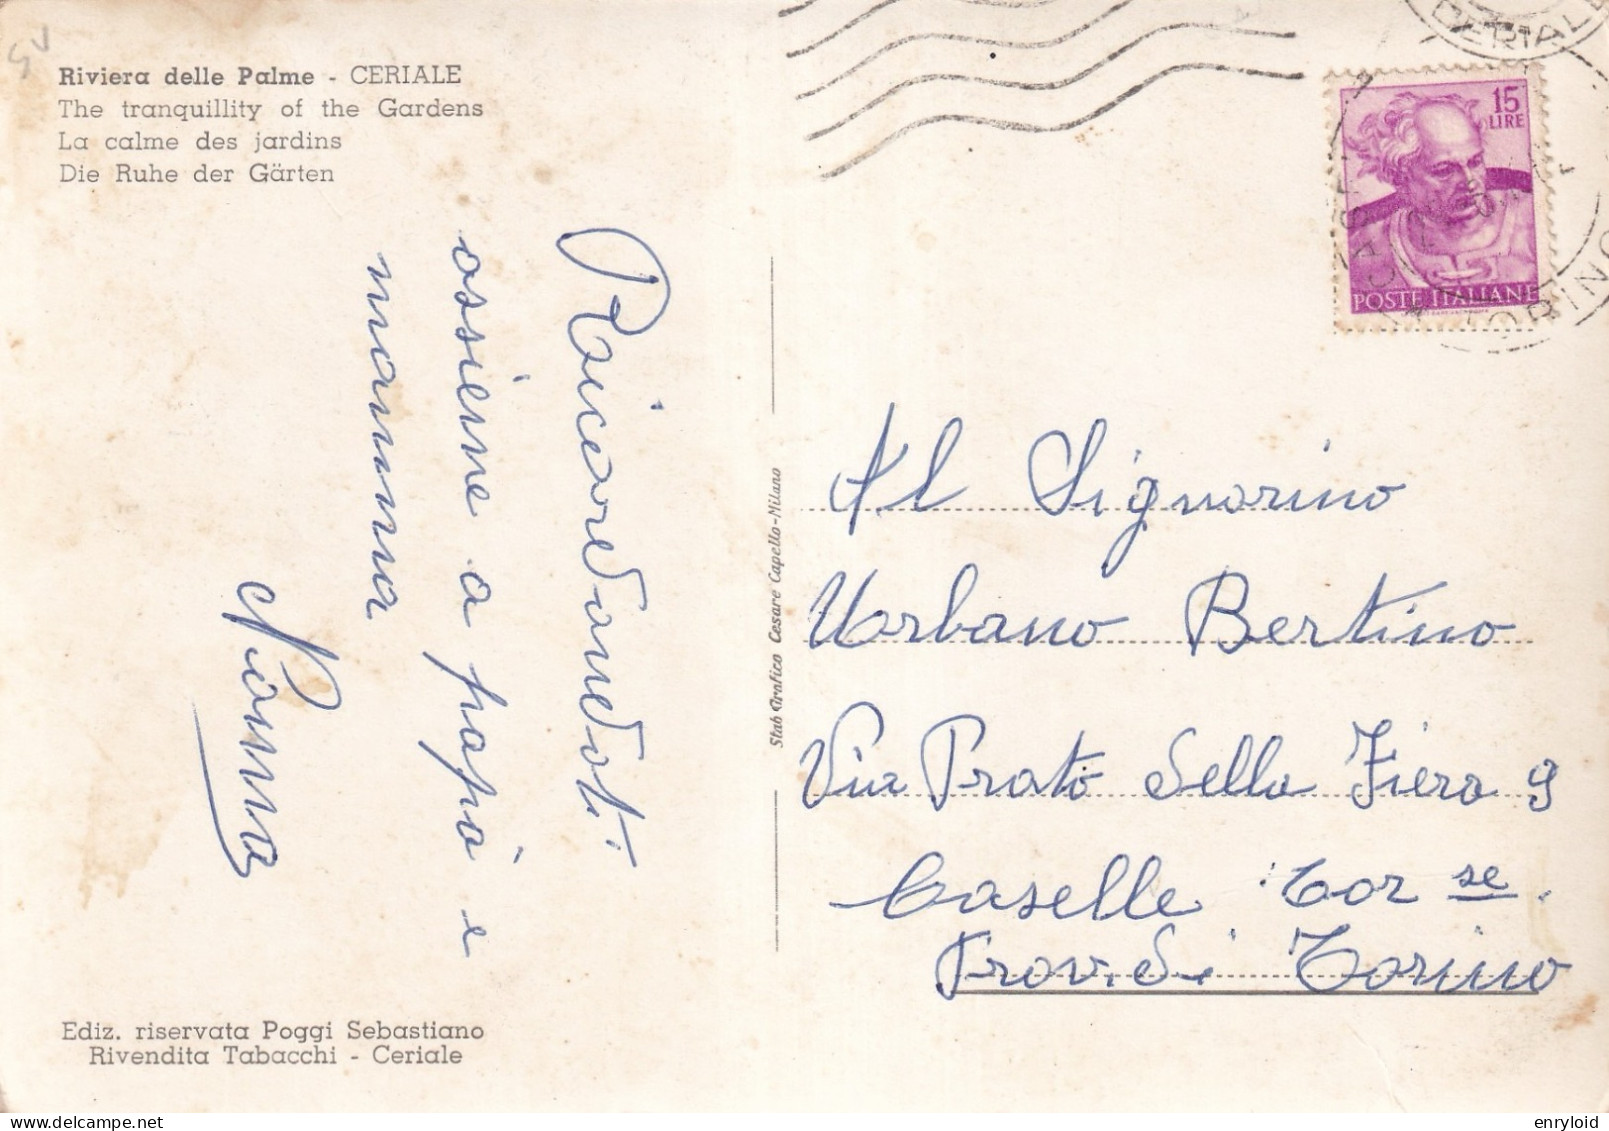 SV
Riviera delle Palme - CERIALE
The tranquillity of the Gardens
La calme des jardins
Die Ruhe der Gärten
15
LIRE
POSTE ITALIANE
TORINO
Ricordandoti
assieme a papà e
mamma
Nonna
Stab Grafico Cesare Capello-Milano
Al Signorino
Urbano Bertino
Via Prato della Fiera 9
Caselle Torse.
Prov. di Torino
Ediz. riservata Poggi Sebastiano
Rivendita Tabacchi - Ceriale
enryloid